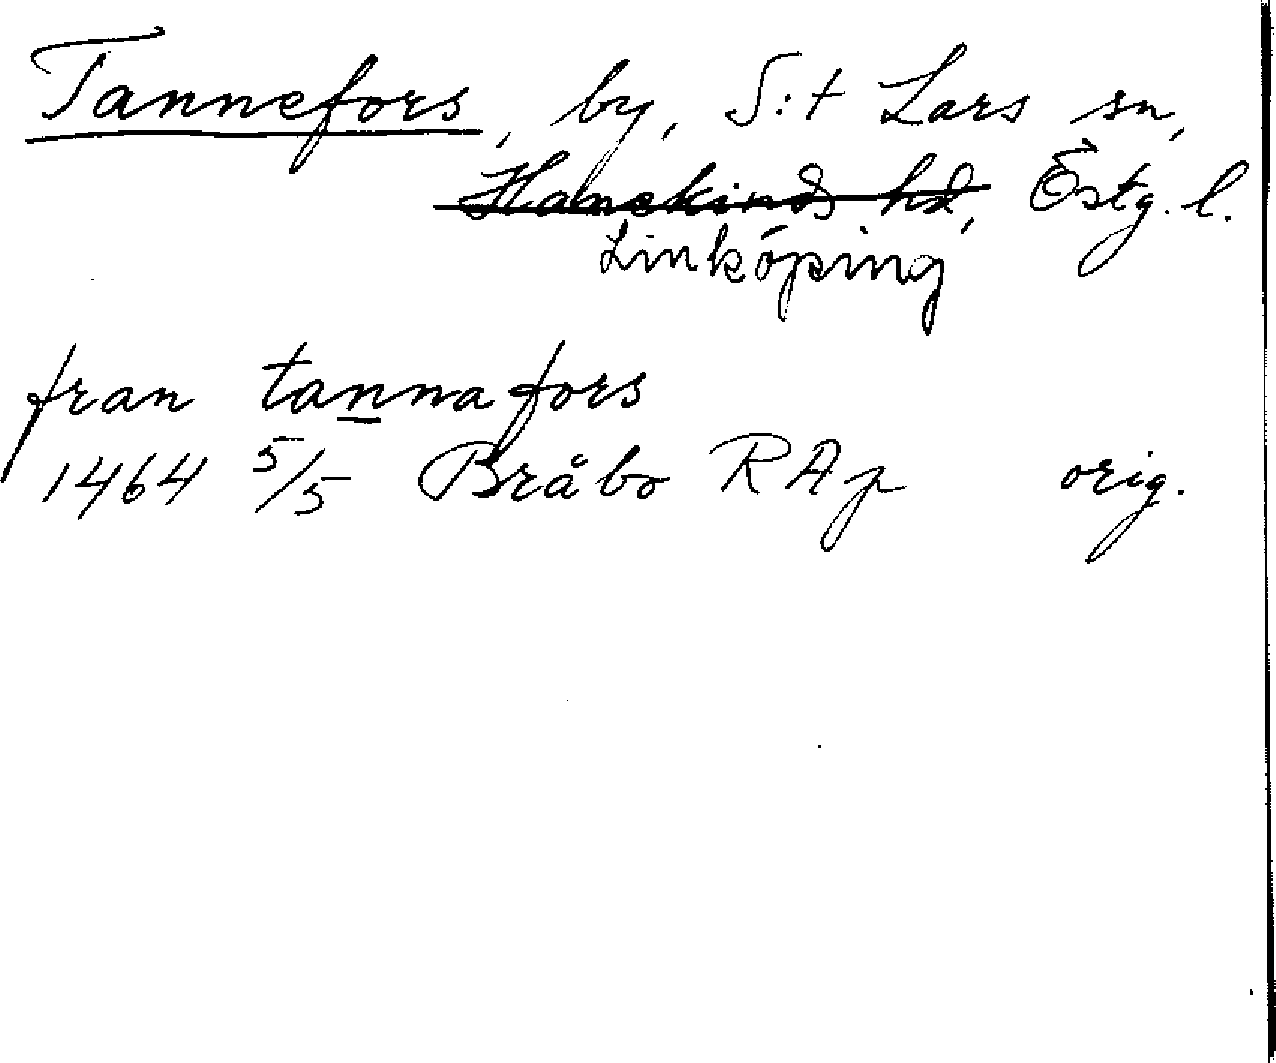 Tannefors, by, S:t Lars sn,
Hanekinds hd, Östg. l.
Linköping
fran tannafors
1464 5/5 Bråbo RAp orig.